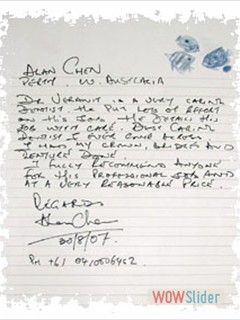 ALAN CHEN
PERTH. W. AUSTRALIA
DR VERANUT IS A VERY CARING
DENTIST. HE PUT LOTS OF EFFORT
ON HIS JOBS. HE OBTAIN HIS
JOB WITH CARE. BEST CARING
DENTIST I EVER COME ACROSS
I HAD MY CROWN, BRIDGES AND
DENTURE DONE.
I FULLY RECOMMEND ANYONE
FOR THIS PROFESSIONAL AND
AT A VERY REASONABLE PRICE.
REGARDS
Alan Chen
30/8/07.
PH +61
WOWSlider